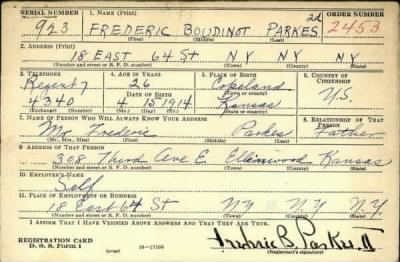 SERIAL NUMBER 1. NAME (Print) ORDER NUMBER
923 FREDERIC BOUDINOT PARKES 2d 2453
(First) (Middle) (Last)
2. ADDRESS (Print)
18 EAST 64 St NY NY NY
(Number and street or R. F. D. number) (Town) (County) (State)
3. TELEPHONE 4. AGE IN YEARS 5. PLACE OF BIRTH 6. COUNTRY OF CITIZENSHIP
Regent 7 26 Copeland
DATE OF BIRTH (Town or county) U.S.
4340 4 15 1914 Kansas
(Exchange) (Number) (Mo.) (Day) (Yr.) (State or country)
7. NAME OF PERSON WHO WILL ALWAYS KNOW YOUR ADDRESS 8. RELATIONSHIP OF THAT PERSON
Mr Frederic Parkes Father
(Mr., Mrs., Miss) (First) (Middle) (Last)
9. ADDRESS OF THAT PERSON
308 Third Ave E. Ellinwood Kansas
(Number and street or R. F. D. number) (Town) (County) (State)
10. EMPLOYER'S NAME
Self
11. PLACE OF EMPLOYMENT OR BUSINESS
18 East 64 St NY N.Y. N.Y.
(Number and street or R. F. D. number) (Town) (County) (State)
I AFFIRM THAT I HAVE VERIFIED ABOVE ANSWERS AND THAT THEY ARE TRUE.
REGISTRATION CARD
D. S. S. Form 1 16—17105 Frederic B. Parkes II
(Registrant's signature)